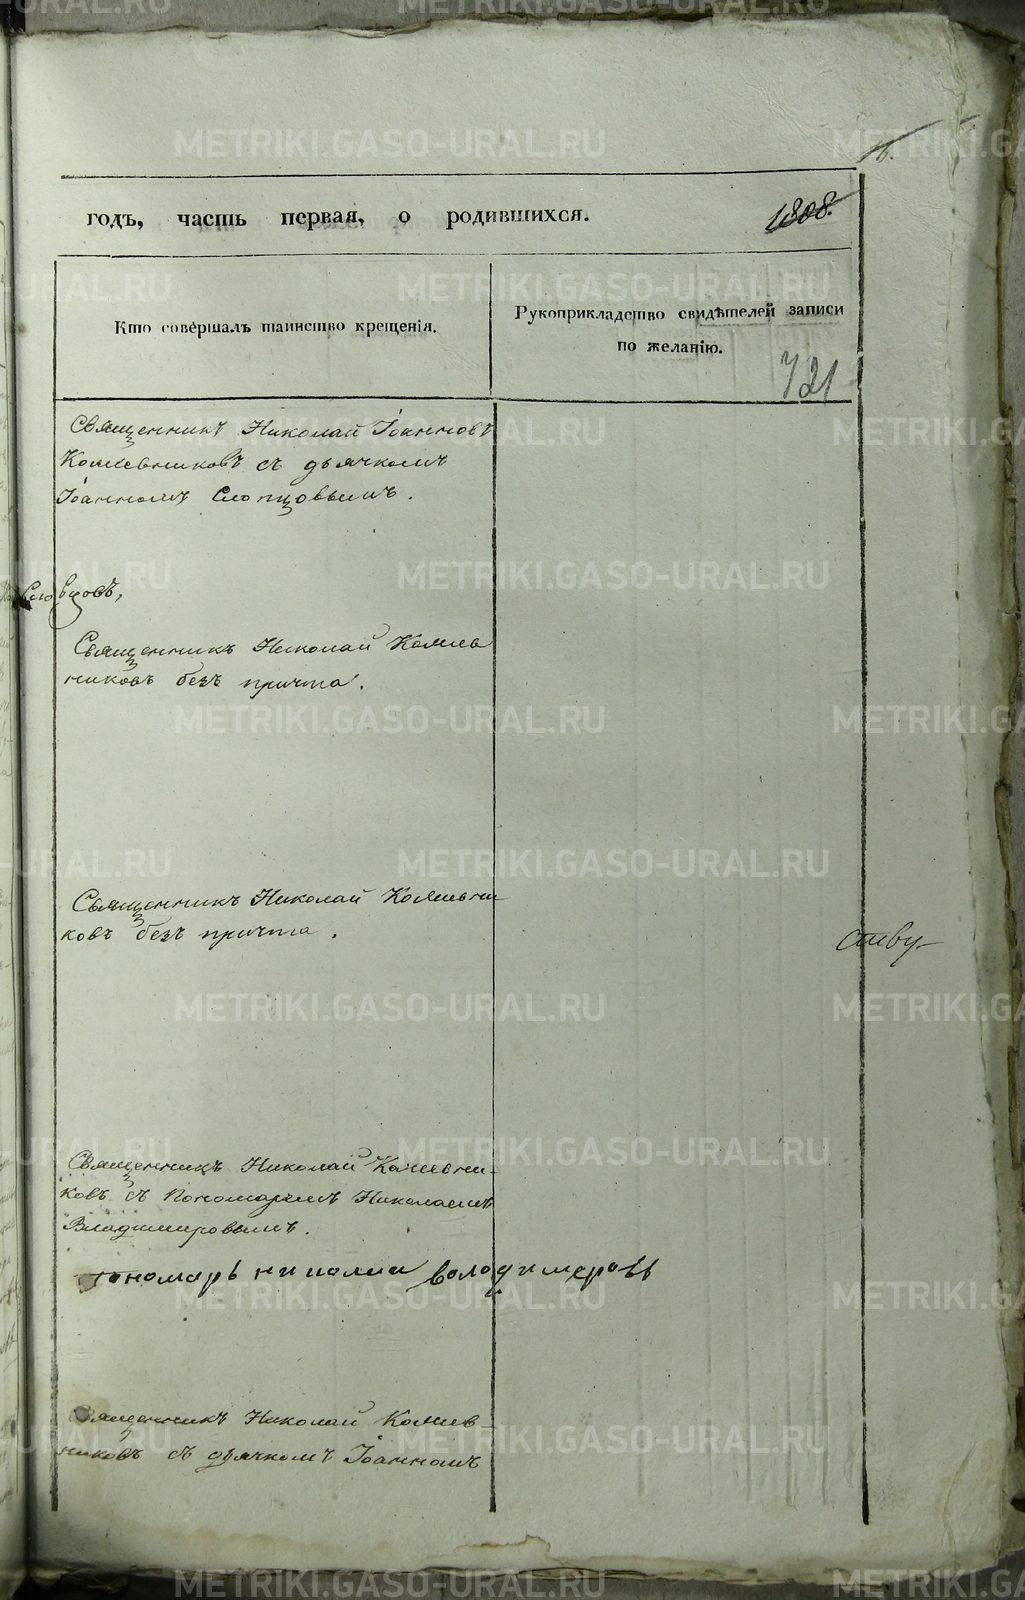 16.
годъ, часть первая, о родившихся. 1808.
Кто совершалъ таинство крещенія.
Рукоприкладство свидѣтелей записи
по желанію.
721
Священникъ Николай Іоанновъ
Кожевниковъ съ дьячкомъ
Іоанномъ Словцовымъ.
Словцовъ,
Священникъ Николай Кожев
никовъ безъ причта.
Священникъ Николай Кожевни
ковъ безъ причта.
ству
Священникъ Николай Кожевни-
ковъ съ Пономаремъ Николаемъ
Владимировымъ.
пономарь николаи володимеровъ
Священникъ Николай Кожев
никовъ съ дьячкомъ Іоанномъ
METRIKI.GASO-URAL.RU